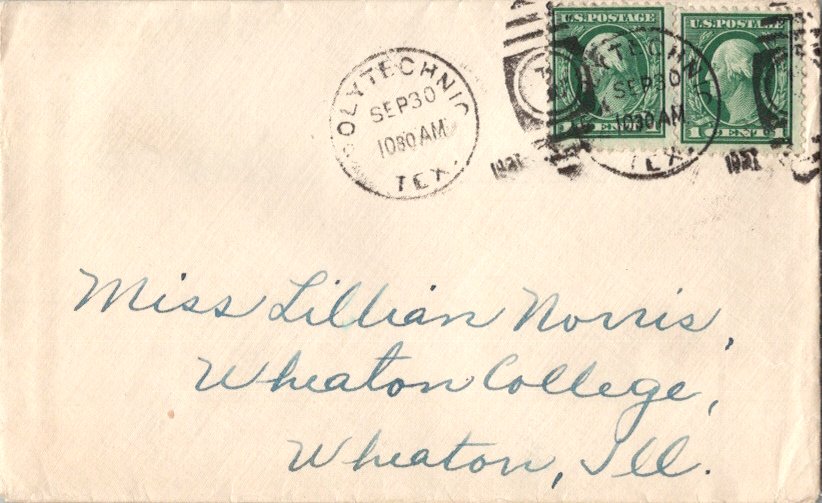 U.S. POSTAGE
U.S. POSTAGE
POLYTECHNIC
SEP 30
1030 AM
TEX.
POLYTECHNIC
SEP 30
1030 AM
TEX.
1 CENT 1
1921
Miss Lillian Norris,
Wheaton College,
Wheaton, Ill.